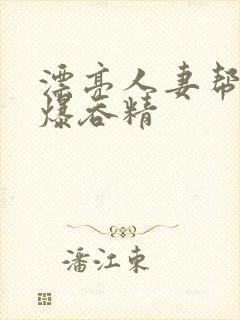 漂亮人妻帮
爆吞精
潘江东